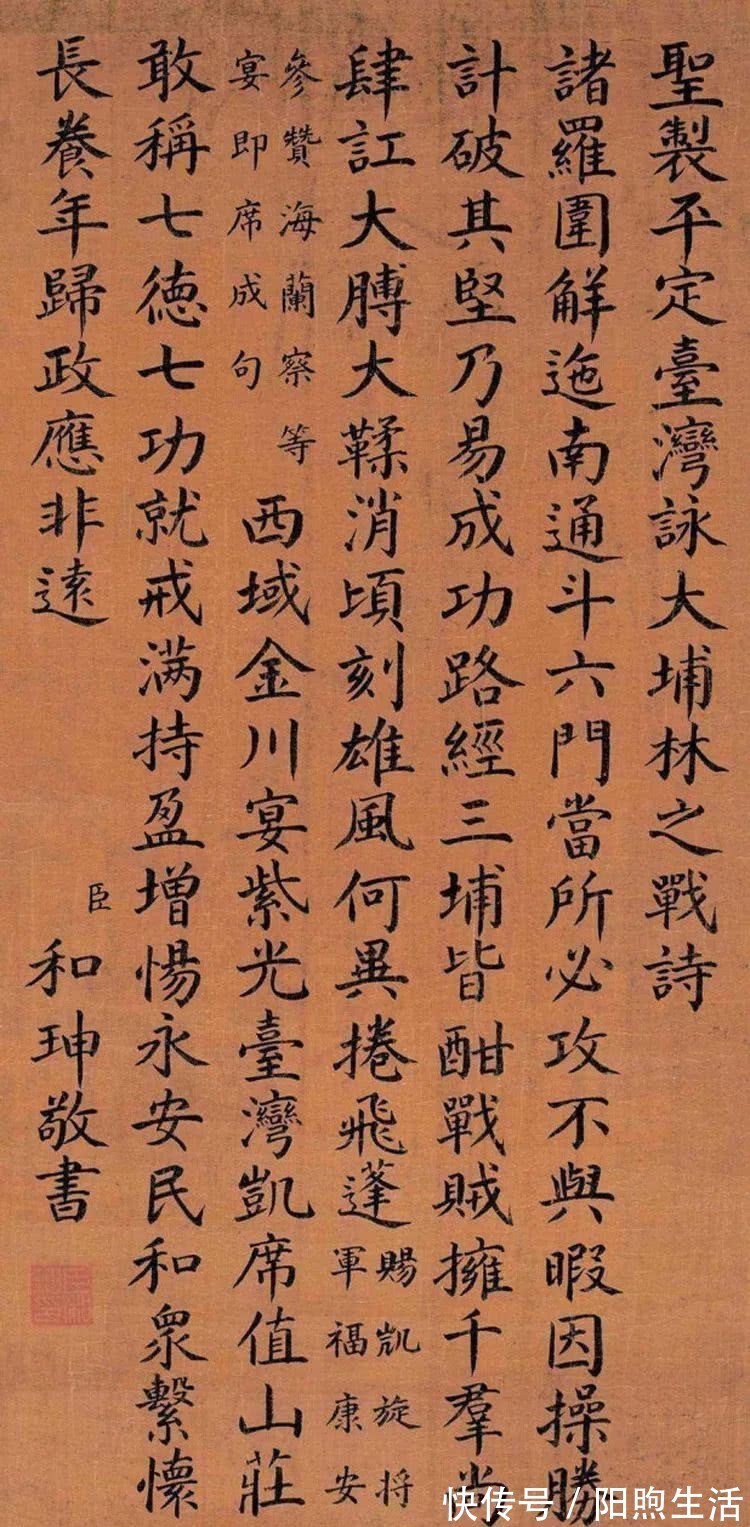 聖製平定臺灣詠大埔林之戰詩
諸羅圍解迤南通斗六門當所必攻不與暇因操勝
計破其堅乃易成功路經三埔皆酣戰賊擁千羣尚
肆訌大膊大鞣消頃刻雄風何異捲飛蓬賜凱旋将
軍福康安
參贊海蘭察等
宴即席成句
西域金川宴紫光臺灣凱席值山莊
敢稱七德七功就戒满持盈增惕永安民和眾繫懷
長養年歸政應非遠
臣
和珅敬書
快传号/阳煦生活